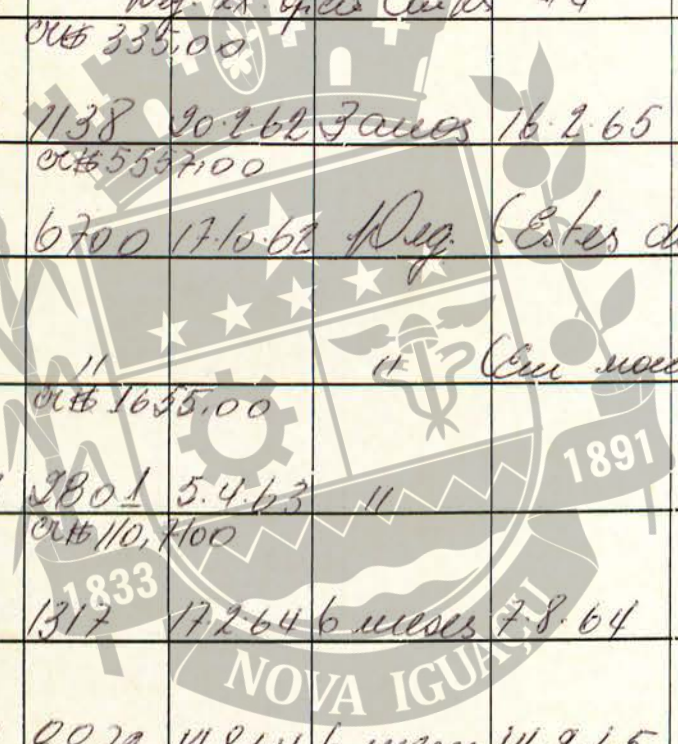 CR$ 335,00
1138 20.2.62 3 anos 16.2.65
CR$ 5537,00
6700 17.10.62 Preg. (Estes
" " (Em
CR$ 1655,00
2801 5.4.63 "
CR$ 110,7100
1317 17.2.64 6 meses 7.8.64
1833
1891
NOVA IGUAÇU